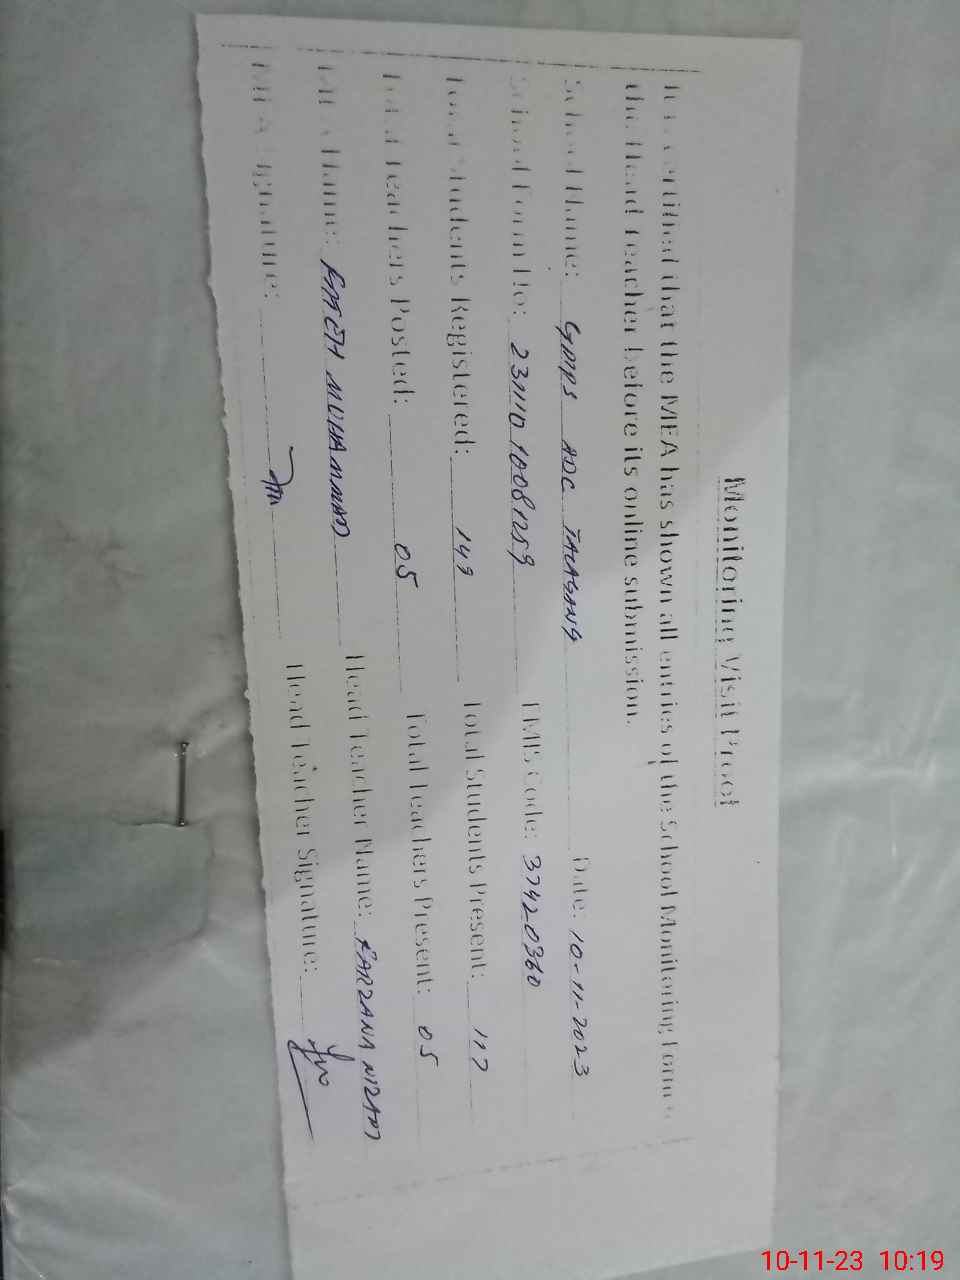 Monitoring Visit Proof
It is certified that the MEA has shown all entries of the School Monitoring Form to
the Head Teacher before its online submission.
School Name: GMPS ADC TALAGANG Date: 10-11-2023
School Form No: 231110 10081259 EMIS Code: 37420360
Total Students Registered: 149 Total Students Present: 117
Total Teachers Posted: 05 Total Teachers Present: 05
MEA Name: FATEH MUHAMMAD Head Teacher Name: FARZANA NIZAMI
MEA Signature: Head Teacher Signature:
10-11-23 10:19